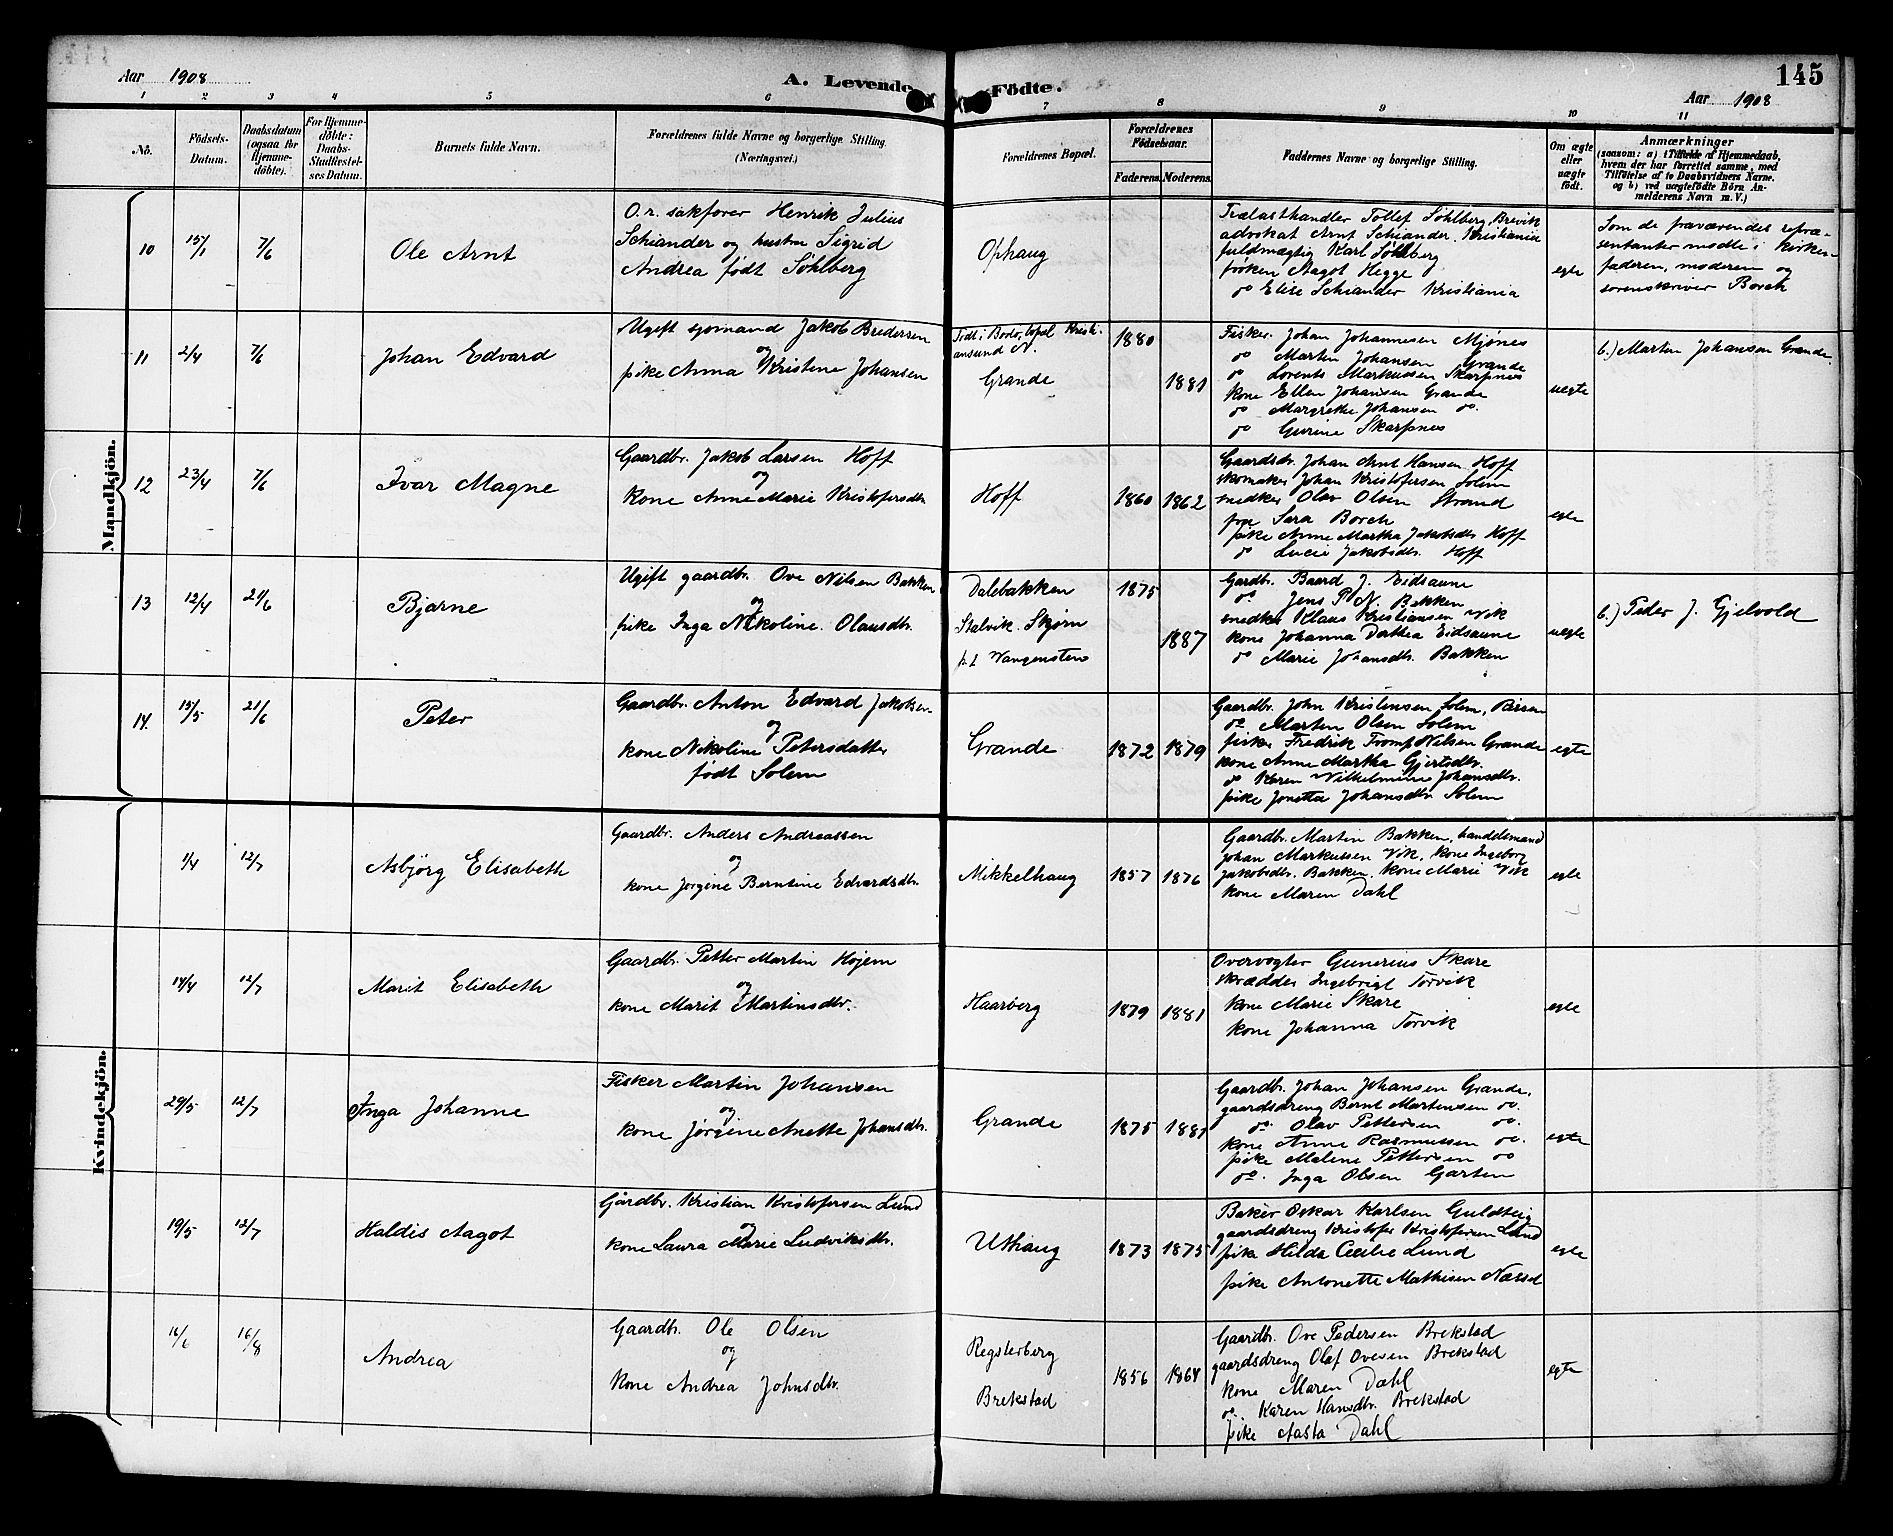 Aar 1908
A. Levende Fødte.
145
Aar 1908
1 2 3 4 5 6 7 8 9 10 11
No.
Fødsels-Datum.
Daabsdatum (ogsaa for Hjemme-døbte).
For Hjemme-døbte: Daabs-Stadfæstel-ses Datum.
Barnets fulde Navn.
Forældrenes fulde Navne og borgerlige Stilling. (Næringsvei.)
Forældrenes Bopæl.
Forældrenes Fødselsaar.
Faderens. Moderens.
Faddernes Navne og borgerlige Stilling.
Om ægte eller uægte født.
Anmærkninger
(saasom: a) i Tilfælde af Hjemmedaab,
hvem der har forrettet samme, med
Tilføielse af to Daabsvidners Navne.
og b) ved uægtefødte Børn An-
melderens Navn m. V.)
Mandkjøn.
10 15/1 7/6 Ole Arnt
O.r. sakfører Henrik Julius
Schiander og hustru Sigrid
Andrea født Søhlberg
Ophaug
Trælasthandler Tollef Søhlberg, Brevik
advokat Arnt Schiander, Kristiania
fuldmægtig Karl Søhlberg
frøken Aagot Hegge
do Elise Schiander Kristiania
egte
Som de fraværendes repræ-
sentanter mødte i kirken
faderen, moderen og
sorenskriver Borch
11 2/4 7/6 Johan Edvard
Ugift sjømand Jakob Bredersen
og
pike Anna Kristine Johansen
Født i Bodø, bopæl Kristi-
ansund N.
Grande
1880
1881
Fisker Johan Johannesen Mjønes
do Martin Johansen Grande
do Lorents Markussen Skarpnes
kone Ellen Johansen Grande
do Margrethe Johansen do.
do Gurine Skarpnes
uegte
b.) Martin Johansen Grande
12 23/4 7/6 Ivar Magne
Gaardbr. Jakob Larsen Hoff
og
kone Anne Marie Kristofersdtr
Hoff
1860 1862
Gaardbr. Johan Arnt Hansen Hoff
skomaker Johan Kristofersen Solem
snedker Olav Olsen Strand
frue Sara Borch
pike Anne Martha Jakobsdtr Hoff
do Lucie Jakobsdtr. Hoff
egte
13 12/4 21/6 Bjarne
Ugift gaardbr. Ove Nilsen Bakken
og
pike Inga Nikoline Olausdtr.
Dalebakken
Stalvik. Skjørn
p.t Wangensten
1875
1887
Gardbr. Baard J. Eidsaune
do. Jens P. N. Bakken
snedker Klaus Kristiansen Vik
kone Johanna Dorthea Eidsaune
do Marie Johansdtr. Bakken
uegte
b.) Peder J. Gjelvold
14. 15/5 21/6 Peter
Gaardbr. Anton Edvard Jakobsen
og
kone Nikoline Petersdatter
født Solem
Grande
1872 1879
Gaardbr. John Kristensen Solem,
do Martin Olsen Solem
fisker Fredrik Tromp Nilsen Grande
kone Anne Martha Gjertsdtr.
do Karen Wilhelmine Johansdtr.
pike Jonetta Johansdtr Solem
egte
Kvindekjøn.
1/4 12/7 Asbjørg Elisabeth
Gaardbr. Anders Andreassen
og
kone Jørgine Berntine Edvardsdtr.
Mikkelhaug
1857 1876
Gaardbr. Martin Bakken, handelsmand
Johan Markussen Vik, kone Ingeborg
Jakobsdtr. Bakken, kone Marie Vik
kone Maren Dahl
egte
14/4 12/7 Marit Elisabeth
Gaardbr. Petter Martin Højem
og
kone Marit Martinsdtr.
Haarberg
1879 1881
Opvogter Gunerius Skare
skrædder Ingebrigt Torvik
kone Marie Skare
kone Johanna Torvik
egte
29/5 12/7 Inga Johanne
Fisker Martin Johansen
og
kone Jørgine Anette Johansdtr.
Grande
1875 1881
Gaardbr. Johan Johansen Grande,
gaardsdreng Bernt Martensen do.
do. Olav Pettersen do.
kone Anne Rasmussen do.
pike Malene Pettersen do
do. Inga Olsen Garten
egte
19/5 12/7 Haldis Aagot
Gårdbr. Kristian Kristofersen Lund
og
kone Laura Marie Ludviksdtr.
Uthaug
1873 1875
Baker Oskar Karlsen Guldteig
gaardsdreng Kristofer Kristofersen Lund
pike Hilda Cecilie Lund
pike Antonette Mathisen Næssel
egte
16/6 16/8 Andrea
Gaardbr. Ole Olsen
og
kone Andrea Johnsdtr.
Regsterberg
Brekstad
1856 1864
Gaardbr. Ove Pedersen Brekstad
gaardsdreng Olaf Ovesen Brekstad
kone Maren Dahl
do. Karen Hansdtr. Brekstad
pike Aasta Dahl
egte